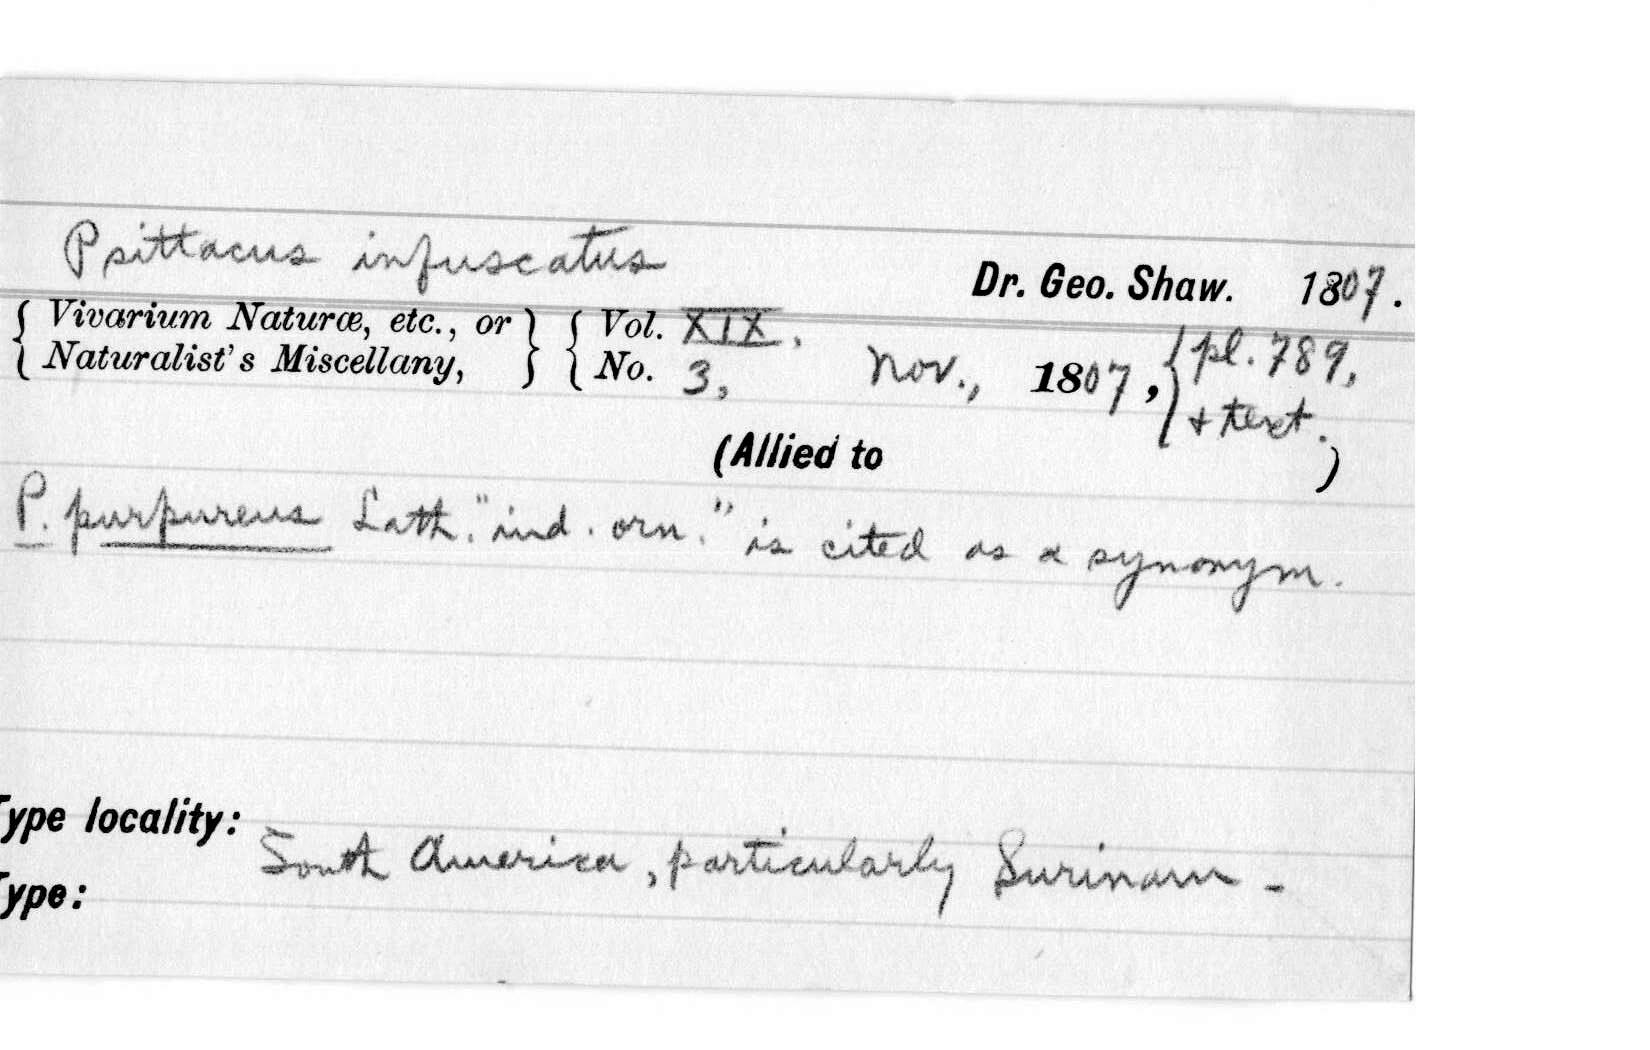 Psittacus infuscatus
Dr. Geo. Shaw. 1807.
{ Vivarium Naturæ, etc., or } { Vol. XIX,
{ Naturalist's Miscellany, } { No. 3, Nov., 1807, { pl. 789,
+ text.
(Allied to )
P. purpureus Lath. "ind. orn." is cited as a synonym.
Type locality: South America, particularly Surinam -
Type: